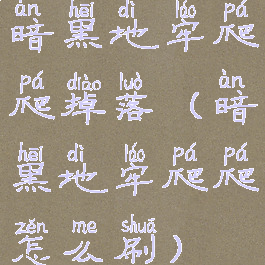 àn hēi dì láo pá
暗黑地牢爬
pá diào luò àn
爬掉落（暗
hēi dì láo pá pá
黑地牢爬爬
zěn me shuā
怎么刷）